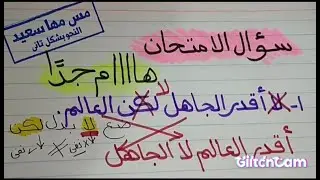 مس مها سعيد
النحو بشكل تاني
سؤال الامتحان
هاااام جدًّا
١- لا أقدر الجاهل لكن العالم
ضع لا بدل لكن
أقدر العالم لا الجاهل
GlitchCam